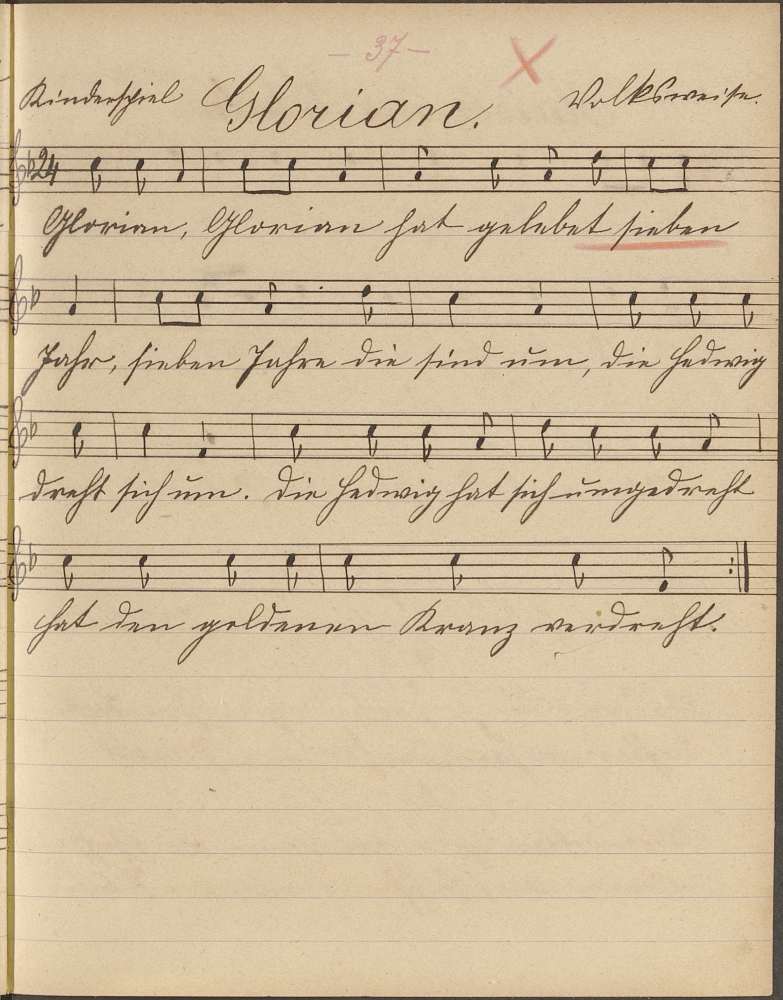 - 37 -
Kinderspiel Glorian. Volksweise.
24
Glorian, Glorian hat gelebet sieben
Jahr, sieben Jahre die sind um, die Hedwig
dreht sich um. Die Hedwig hat sich umgedreht
hat den goldenen Kranz verdreht.